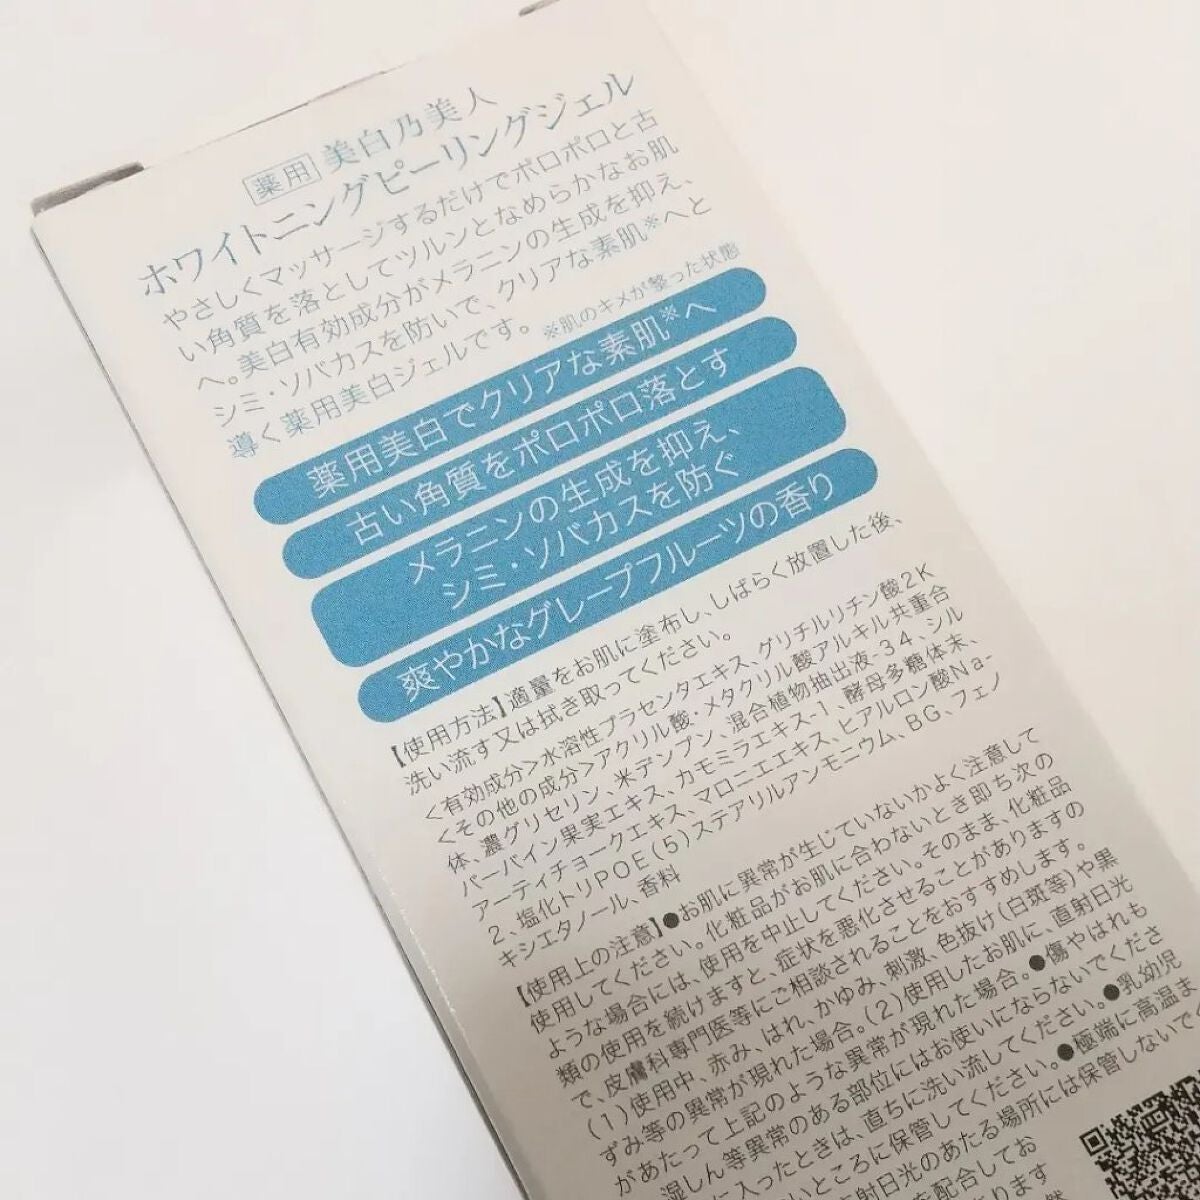 薬用 美白乃美人
ホワイトニングピーリングジェル
やさしくマッサージするだけでポロポロと古
い角質を落としてツルンとなめらかなお肌
へ。美白有効成分がメラニンの生成を抑え、
シミ・ソバカスを防いで、クリアな素肌※へと
導く薬用美白ジェルです。 ※肌のキメが整った状態
薬用美白でクリアな素肌※へ
古い角質をポロポロ落とす
メラニンの生成を抑え、
シミ・ソバカスを防ぐ
爽やかなグレープフルーツの香り
【使用方法】適量をお肌に塗布し、しばらく放置した後、
洗い流す又は拭き取ってください。
<有効成分>水溶性プラセンタエキス、グリチルリチン酸2K
<その他の成分>アクリル酸・メタクリル酸アルキル共重合
体、濃グリセリン、米デンプン、混合植物抽出液-34、シル
バーバイン果実エキス、カモミラエキス-1、酵母多糖体末、
アーティチョークエキス、マロニエエキス、ヒアルロン酸Na-
2、塩化トリPOE(5)ステアリルアンモニウム、BG、フェノ
キシエタノール、香料
【使用上の注意】●お肌に異常が生じていないかよく注意して
使用してください。化粧品がお肌に合わないとき即ち次の
ような場合には、使用を中止してください。そのまま、化粧品
類の使用を続けますと、症状を悪化させることがありますの
で、皮膚科専門医等にご相談されることをおすすめします。
(1)使用中、赤み、はれ、かゆみ、刺激、色抜け(白斑等)や黒
ずみ等の異常が現れた場合。(2)使用したお肌に、直射日光
があたって上記のような異常が現れた場合。●傷やはれも
湿しん等異常のある部位にはお使いにならないでくださ
に入ったときは、直ちに洗い流してください。●乳幼児
いところに保管してください。●極端に高温ま
射日光のあたる場所には保管しないでく
を配合してお
ります